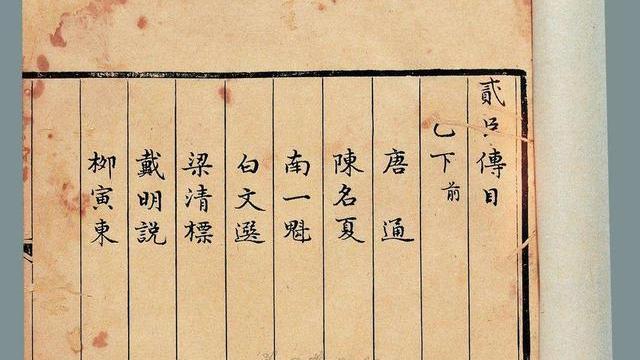 貳臣傳目
乙下前
唐通
陳名夏
南一魁
白文選
梁清標
戴明説
柳寅東